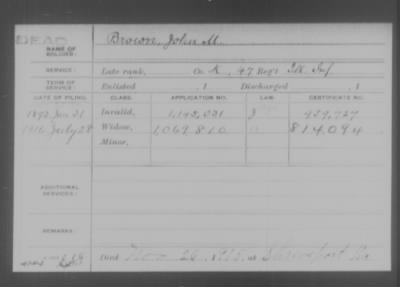 DEAD
NAME OF SOLDIER: Brown, John M.
SERVICE: Late rank, Co. K, 47 Reg't Ill. Inf.
TERM OF SERVICE: Enlisted , 1 Discharged , 1
DATE OF FILING. CLASS. APPLICATION NO. LAW. CERTIFICATE NO.
1892 Jan 21 Invalid,
1916 July 28 Widow, 1,069,810 814,094
Minor,
ADDITIONAL SERVICES:
REMARKS:
Died Nov 26, 1915, at Shreveport La